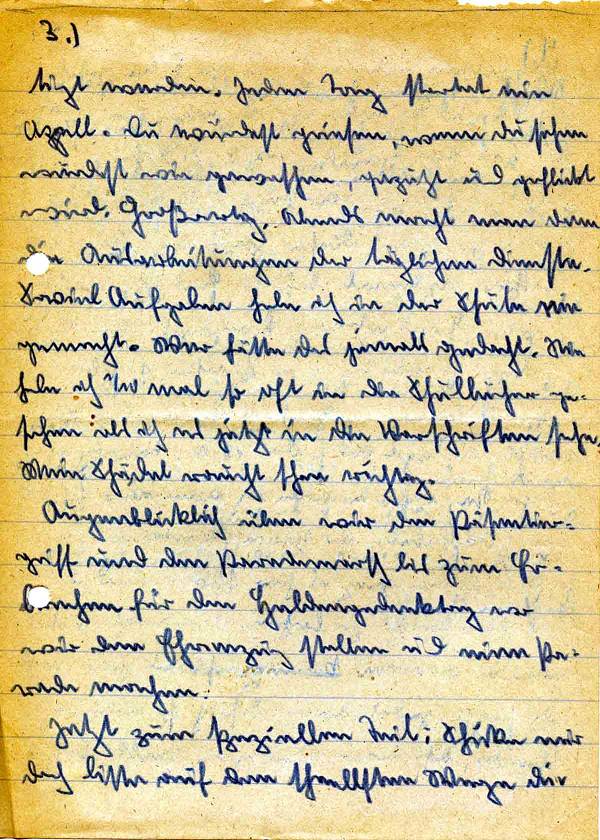 3.)
tigt werden. Jeden Tag startet ein
Appell. Du würdest grinsen, wenn Du sehen
würdest wie gewaschen, geputzt und geflickt
wird. Großartig. Abends macht man dann
die Ausarbeitungen der täglichen Dienste.
Soviel Aufgaben habe ich in der Schule nie
gemacht. Wer hätte das jemals gedacht. Nie
habe ich mal so oft in die Schulbücher ge-
sehen als ich es jetzt in die Vorschriften sehe.
Mein Schädel raucht schon richtig.
Augenblicklich üben wir den Präsentier-
griff und den Parademarsch bis zum Er-
brechen für den Heldengedenktag wo
wir den Ehrenzug stellen und eine Pa-
rade machen.
Jetzt zum speziellen Teil: Schicke mir
doch bitte auf dem schnellsten Wege die